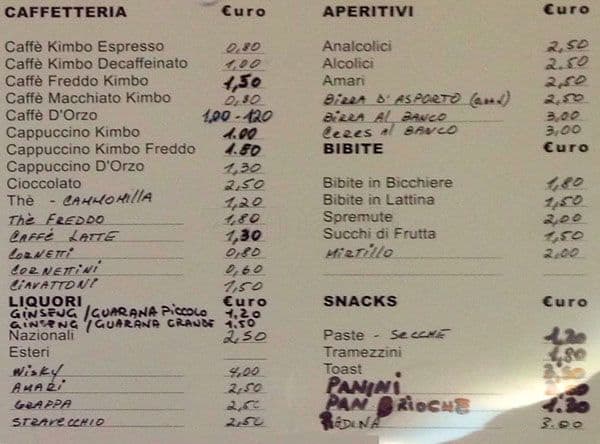 CAFFETTERIA €uro
Caffè Kimbo Espresso 0,80
Caffè Kimbo Decaffeinato 1,00
Caffè Freddo Kimbo 1,50
Caffè Macchiato Kimbo 0,80
Caffè D'Orzo 1,00-120
Cappuccino Kimbo 1.00
Cappuccino Kimbo Freddo 1.80
Cappuccino D'Orzo 1,30
Cioccolato 2,50
Thè - CAMMOMILLA 1,20
THè FREDDO 1,80
CAFFÈ LATTE 1,30
CORNETTI 0,80
CORNETTINI 0,60
CIAVATTONI 1,50
LIQUORI €uro
GINSENG/GUARANA PICCOLO 1.20
GINSENG/GUARANA GRANDE 1.50
Nazionali 2,50
Esteri
WISKY 4,00
AMARI 2,50
GRAPPA 2,50
STRAVECCHIO 2,50
APERITIVI €uro
Analcolici 2,50
Alcolici 2.50
Amari 2,50
BIRRA D'ASPORTO 2,50
BIRRA AL BANCO 3,00
CERES AL BANCO 3,00
BIBITE €uro
Bibite in Bicchiere 1,80
Bibite in Lattina 1,50
Spremute 2,00
Succhi di Frutta 1,50
MIRTILLO 2,00
SNACKS €uro
Paste - SECCHE 1,20
Tramezzini 1,80
Toast
PANINI
PAN BRIOCHE 1.30
PIADINA 3.00